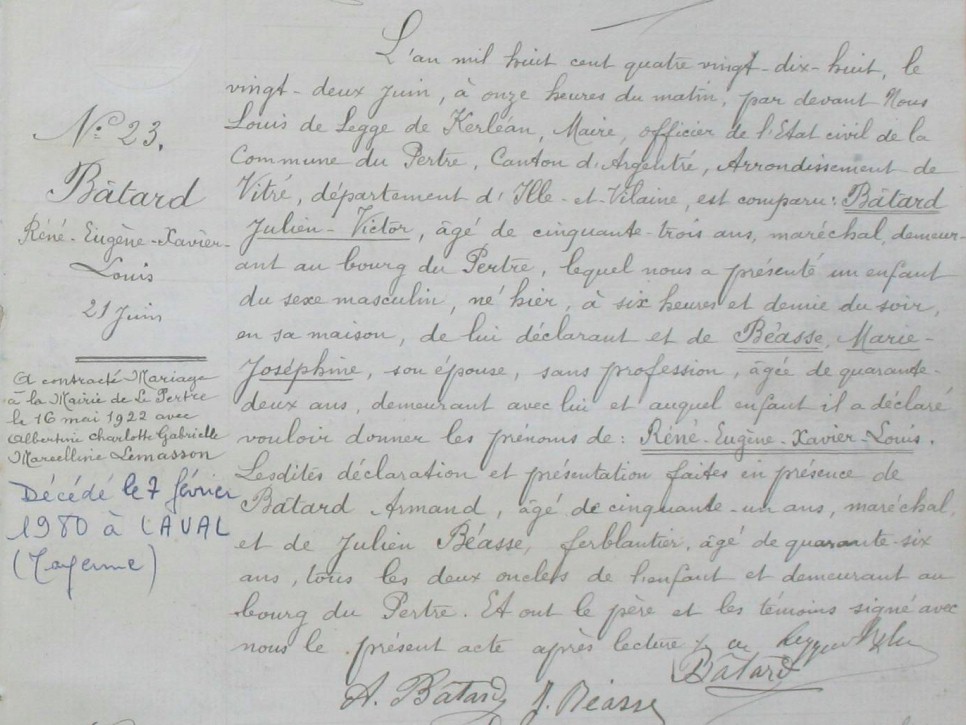 N.º 23.
Bâtard
Réné-Eugène-Xavier-
Louis
21 Juin
A contracté Mariage
à la Mairie de Le Pertre
le 16 mai 1922 avec
Albertine Charlotte Gabrielle
Marcelline Lemasson
Décédé le 7 février
1980 à LAVAL
(Mayenne)
L'an mil huit cent quatre vingt-dix-huit, le
vingt-deux Juin, à onze heures du matin, par devant Nous
Louis de Legge de Kerléan, Maire, officier de l'Etat civil de la
Commune du Pertre, Canton d'Argentré, Arrondissement de
Vitré, département d'Ille-et-Vilaine, est comparu: Bâtard
Julien-Victor, âgé de cinquante-trois ans, maréchal, demeur-
ant au bourg du Pertre, lequel nous a présenté un enfant
du sexe masculin, né hier, à six heures et demie du soir,
en sa maison, de lui déclarant et de Béasse, Marie-
Joséphine, son épouse, sans profession, âgée de quarante-
deux ans, demeurant avec lui et auquel enfant il a déclaré
vouloir donner les prénoms de: Réné-Eugène-Xavier-Louis.
Lesdites déclaration et présentation faites en présence de
Bâtard Armand, âgé de cinquante-un ans, maréchal,
et de Julien Béasse, ferblantier, âgé de quarante-six
ans, tous les deux oncles de l'enfant et demeurant au
bourg du Pertre. Et ont le père et les témoins signé avec
nous le présent acte après lecture
Bâtard
A. Bâtard J. Béasse